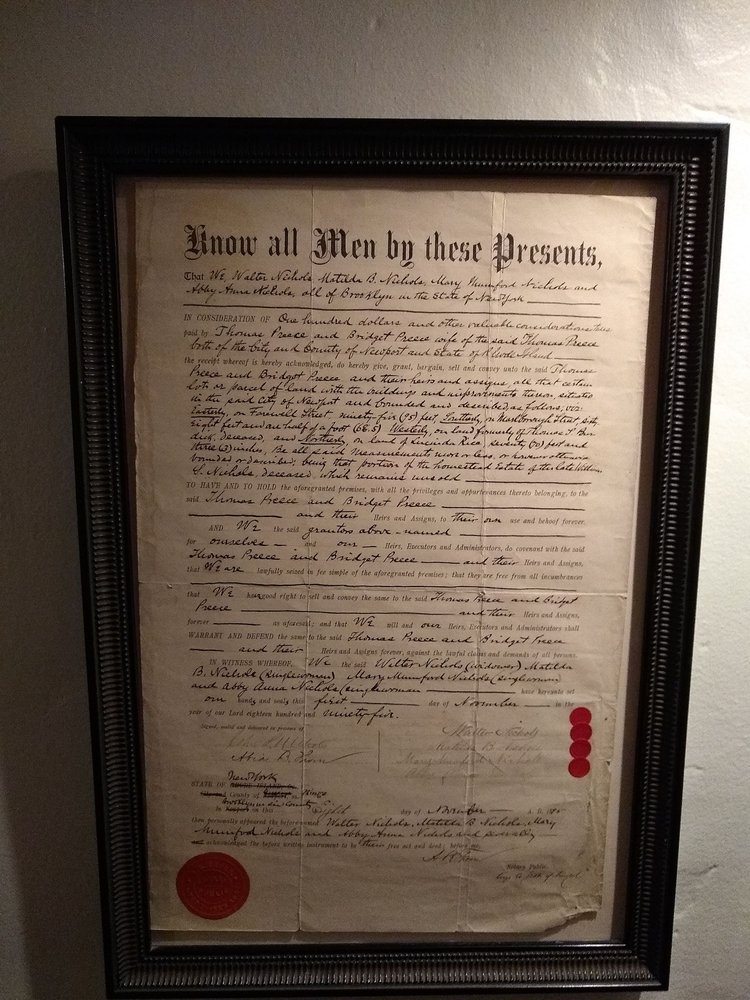 Know all Men by these Presents,
That We, Walter Nichols, Matilda B. Nichols, Mary Mumford Nichols and
Abby Anna Nichols, all of Brooklyn in the State of New York
IN CONSIDERATION OF One hundred dollars and other valuable considerations
paid by Thomas Preece and Bridget Preece wife of the said Thomas Preece
both of the City and County of Newport and State of Rhode Island
the receipt whereof is hereby acknowledged, do hereby give, grant, bargain, sell and convey unto the said Thomas
Preece and Bridget Preece, and their heirs and assigns, all that certain
lot or parcel of land with the buildings and improvements thereon, situated
in the said City of Newport and bounded and described as follows, viz:
Easterly, on Farewell Street, ninety five (95) feet, Southerly, on Marlborough Street, sixty
eight feet and one half of a foot (68.5) Westerly, on land formerly of Thomas T.
deceased, and Northerly, on land of Lucinda Rice, seventy (70) feet and
three (3) inches, Be all said measurements more or less, or however otherwise
bounded or described, being that portion of the homestead Estate of the late William
S. Nichols, deceased, which remains unsold
TO HAVE AND TO HOLD the aforegranted premises, with all the privileges and appurtenances thereto belonging, to the
said Thomas Preece and Bridget Preece
and their Heirs and Assigns, to their own use and behoof forever.
AND We the said grantors above-named
for ourselves and our Heirs, Executors and Administrators, do covenant with the said
Thomas Preece and Bridget Preece and their Heirs and Assigns,
that We are lawfully seized in fee simple of the aforegranted premises; that they are free from all incumbrances
that We have good right to sell and convey the same to the said Thomas Preece and Bridget
Preece and their Heirs and Assigns,
forever as aforesaid; and that We will and our Heirs, Executors and Administrators shall
WARRANT AND DEFEND the same to the said Thomas Preece and Bridget Preece
and their Heirs and Assigns forever, against the lawful claims and demands of all persons.
IN WITNESS WHEREOF, We the said Walter Nichols (widower) Matilda
B. Nichols (singlewoman) Mary Mumford Nichols (singlewoman
and Abby Anna Nichols (singlewoman have hereunto set
our hands and seals this first day of November in the
year of our Lord eighteen hundred and ninety-five.
Signed, sealed and delivered in presence of
Walter Nichols
Matilda B. Nichols
Mary Mumford Nichols
New York
STATE OF
County of Kings
Brooklyn in said County
In on this day of November A. D. 18
then personally appeared the before-named Walter Nichols, Matilda B Nichols, Mary
Mumford Nichols and Abby Anna Nichols and severally
acknowledged the before written instrument to be their free act and deed; before me,
Notary Public.